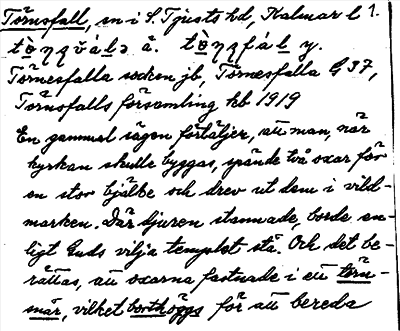 Törnsfall, sn i S. Tjusts hd, Kalmar l 1.
tö̀ŋsvàlə ä. tö̀ŋsfál y.
Törnesfalla socken jb, Törnesfalla G 37,
Törnsfalls församling kb 1919
En gammal sägen förtäljer, att man, när
kyrkan skulle byggas, spände två oxar för
en stor bjälke och drev ut dem i vild-
marken. Där djuren stannade, borde en-
ligt Guds vilja templet stå. Och det be-
rättas, att oxarna fastnade i ett törn-
snår, vilket borthöggs för att bereda